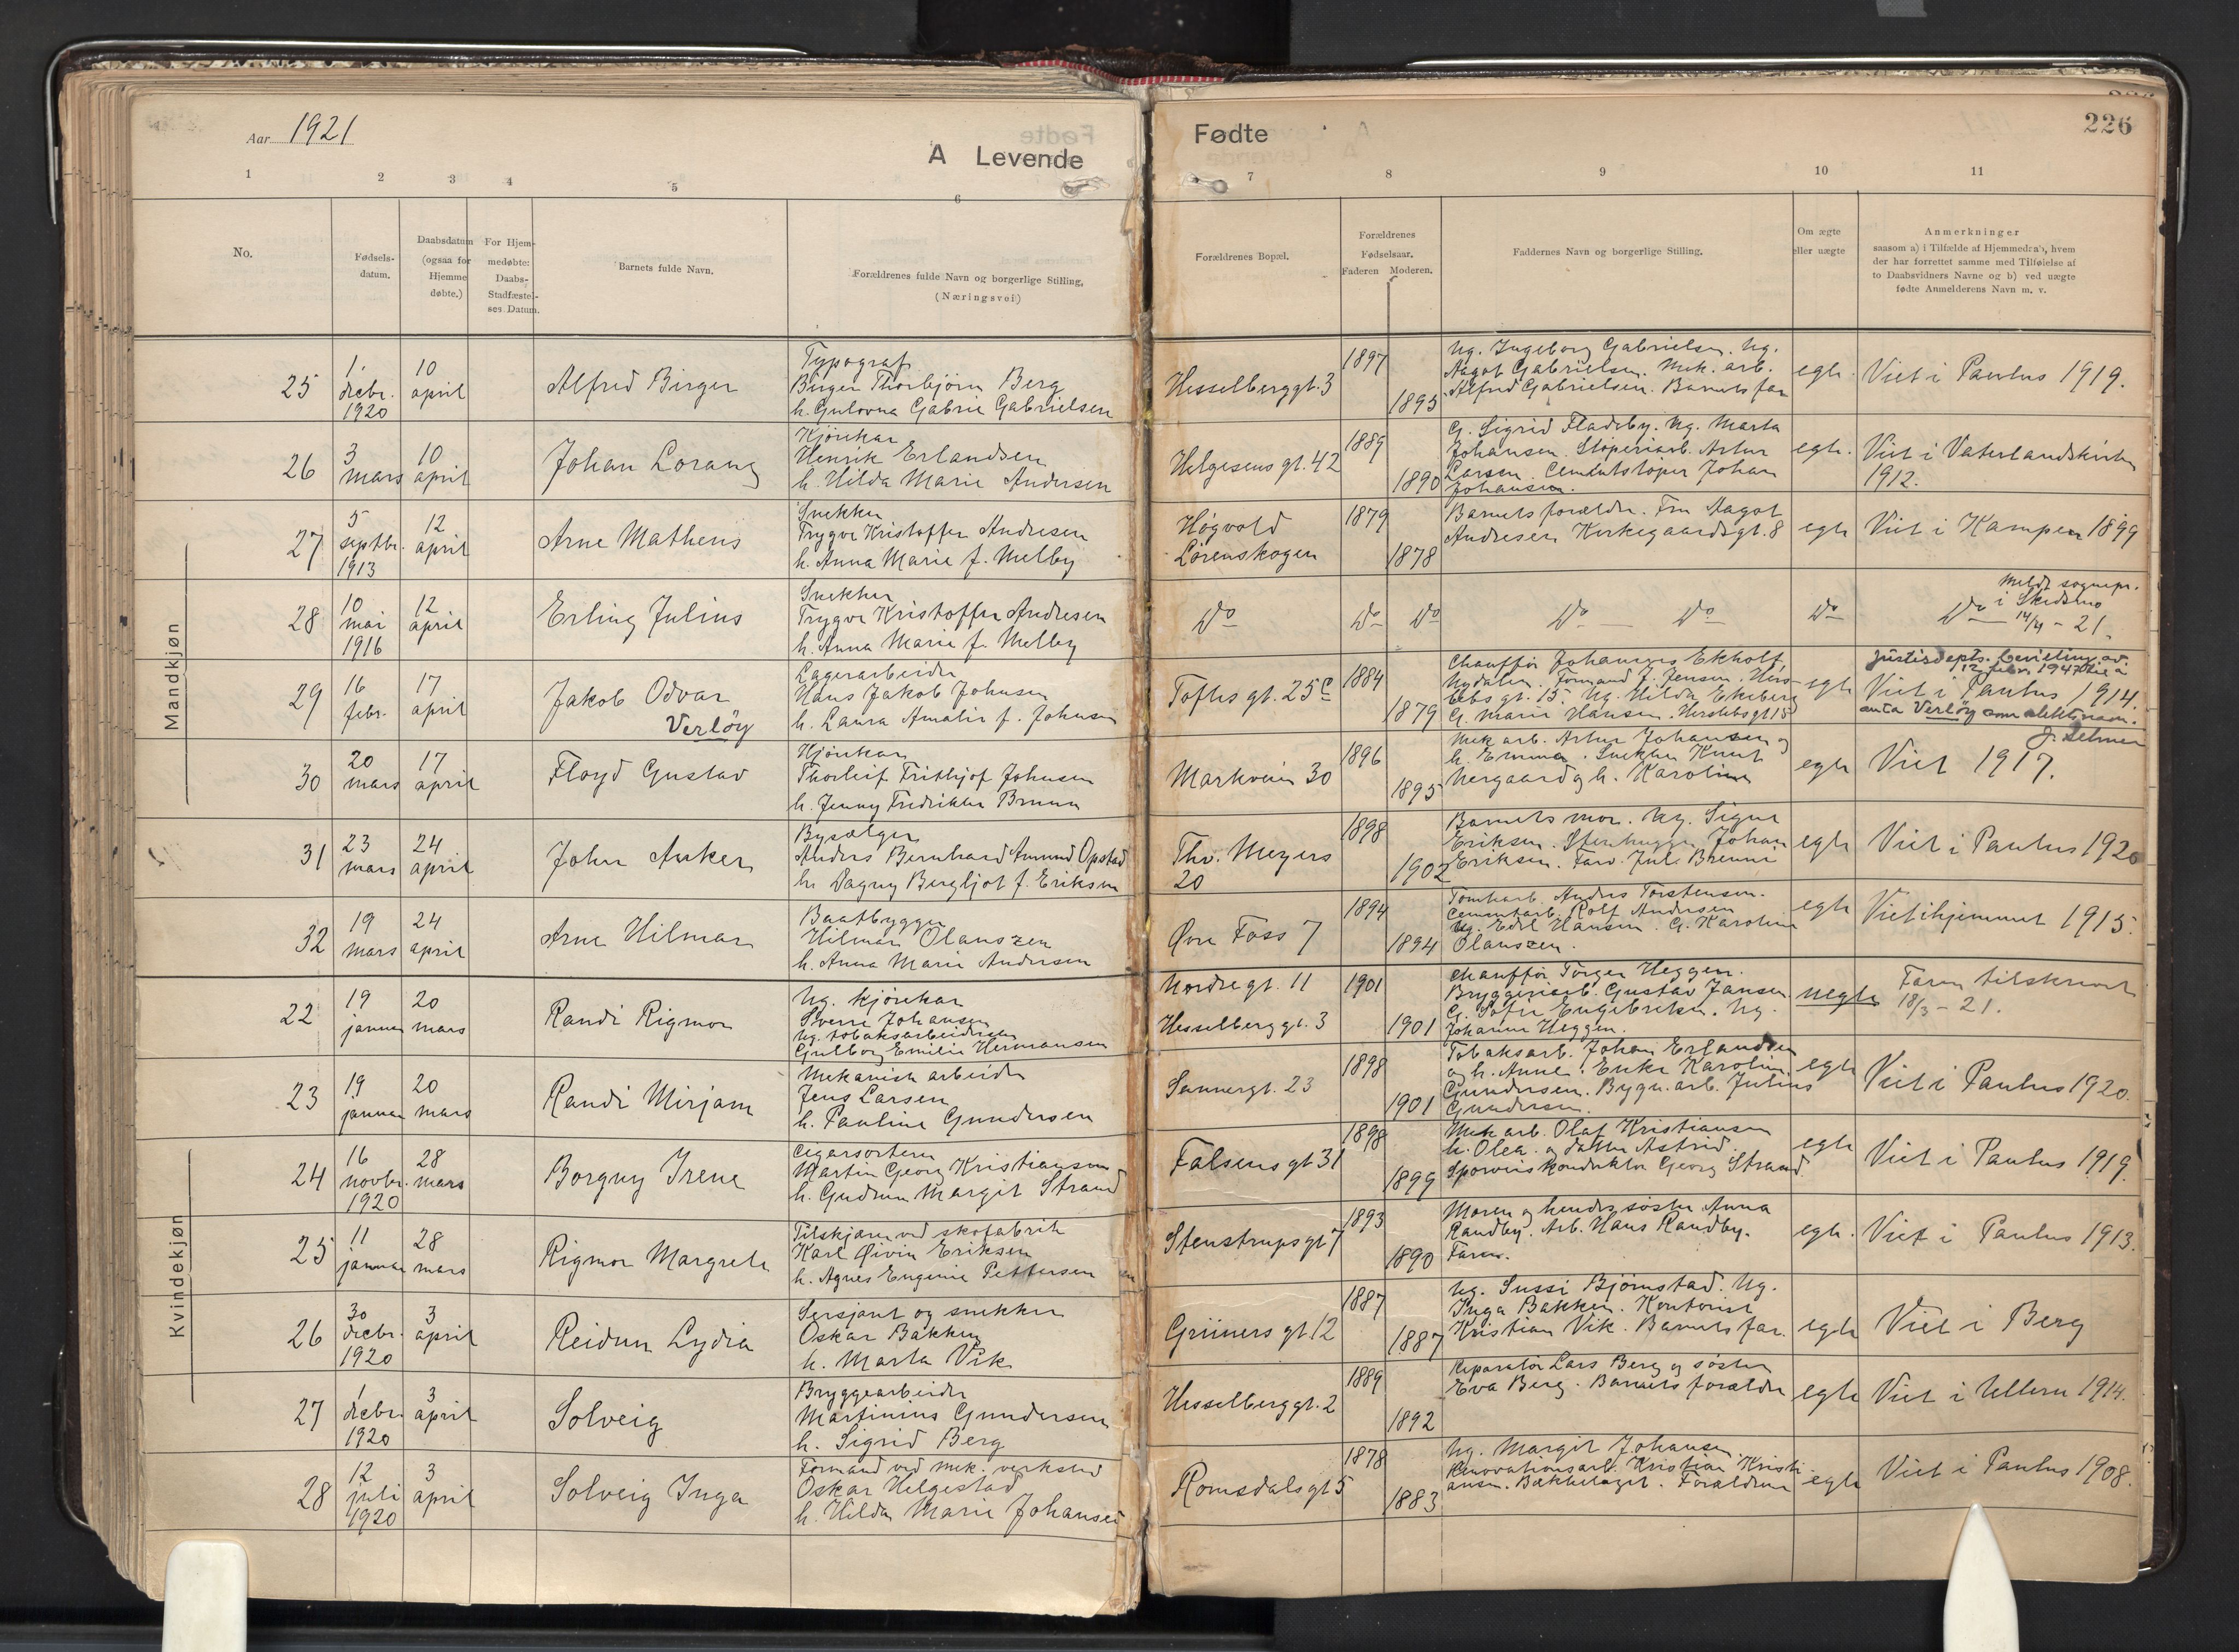 Aar 1921
A Levende
Fødte
226
1 2 3 4 5 6 7 8 9 10 11
No.
Fødsels-
datum.
Daabsdatum
(ogsaa for
Hjemme
døbte.)
For Hjem-
medøbte:
Daabs-
Stadfæstel-
ses Datum.
Barnets fulde Navn.
Forældrenes fulde Navn og borgerlige Stilling.
(Næringsvei)
Forældrenes Bopæl.
Forældrenes
Fødselsaar.
Faderen Moderen.
Faddernes Navn og borgerlige Stilling.
Om ægte
eller uægte
Anmerkninger
saasom a) i Tilfælde af Hjemmedaab, hvem
der har forrettet samme med Tilføielse af
to Daabsvidners Navne og b) ved uægte
fødte Anmelderens Navn m. v.
Mandkjøn
25
1.
decbr.
1920
10
april
Alfred Birger
Typograf
Birger Thorbjørn Berg
h. Gulovna Gabrie Gabrielsen
Hesselberggt. 3
1897
1895
Ug. Ingeborg Gabrielsen. Ug.
Aagot Gabrielsen. Mek. arb.
Alfred Gabrielsen. Barnets far
egte.
Viet i Paulus 1919.
26
3
mars
10
april
Johan Lorang
Kjørekar
Henrik Erlandsen
h. Hilda Marie Andersen
Helgesens gt. 42
1889
1890
G. Sigrid Fladeby. Ug. Marta
Johansen. Støperiarb. Artur
Larsen. Cementstøper Johan
Johansen.
egte.
Viet i Vaterlandskirken
1912.
27
5
septbr.
1913
12
april
Arne Matheus
Snekker
Trygve Kristoffer Andresen
h. Anna Marie f. Melby
Høgvold
Lørenskogen
1879
1878
Barnets forældre. Fru Aagot
Andresen Kirkegaardsgt. 8
egte
Viet i Kampen 1899
28
10
mai
1916
12
april
Erling Julius
Snekker
Trygve Kristoffer Andresen
h. Anna Marie f. Melby
Do
Do Do
Do — Do
Do
Do
Meldt sognepr.
i Skedsmo
14/4 - 21.
29
16
febr.
17
april
Jakob Odvar
Verløy
Lagerarbeider
Hans Jakob Johnsen
h. Laura Amalie f. Johnsen
Toftes gt. 25c
1884
1879
Chauffør Johannes Ekholt,
Nydalen. Formand J. Jensen. Hers-
lebs gt. 15. Ug. Hilda Ekeberg
G. Marie Hansen. Herslebsgt 15
egte
Justisdepts. bevilling av
12 febr. 1947 til å
Viet i Paulus 1914.
anta Verløy som slektsnavn.
30
20
mars
17
april
Floyd Gustav
Kjørekar
Thorleif Frithjof Johnsen
h. Jenny Fredrikke Bruun
Markveien 30
1896
1895
Mek arb. Artur Johansen og
h. Emma. Snekker Knut
Nergaard og h. Karoline
egte
Viet 1917.
31
23
mars
24
april
John Anker
Bysælger
Anders Bernhard Amund Opstad
h. Dagny Bergljot f. Eriksen
Thv. Meyers
20
1898
1902
Barnets mor. Ug. Signe
Eriksen. Stenhugger Johan
Eriksen. Farv. Jul. Brenne
egte
Viet i Paulus 1920
32
19
mars
24
april
Arne Hilmar
Baatbygger
Hilmar Olanszen
h. Anna Marie Andersen
Øvre Foss 7
1894
1894
Tomtearb. Anders Torstensen.
Cementarb. Rolf Andersen
Ug. Edel Hansen. G. Karoline
Olanszen.
egte
Viet i hjemmet 1915.
Kvindekjøn
22
19
januar
20
mars
Randi Rigmor
Ug. kjørekar
Sverre Johansen
Ug. tobaksarbeiderske
Gulborg Emilie Hermansen
Nordregt. 11
Hesselberggt. 3
1901
1901
Chauffør Torger Heggen.
Bryggeriarb. Gustav Jansen
G. Sofie Engebretsen. Ug.
Johanne Heggen.
uegte
Faren tilskrevet
18/3 - 21.
23
19
januar
20
mars
Randi Mirjam
Mekanisk arbeider
Jens Larsen
h. Pauline Gundersen
Sannergt. 23
1898
1901
Tobaksarb. Johan Erlandsen
og h. Anne. Enke Karoline
Gundersen. Bygn. arb. Julius
Gundersen.
egte
Viet i Paulus 1920.
24
16
novbr.
1920
28
mars
Borgny Irene
Cigarsorterer
Martin Georg Kristiansen
h. Gudrun Margit Strand
Falsens gt 31
1898
1899
Mek arb. Olaf Kristiansen
h. Olea og datter Astrid.
Sporveiskonduktør Georg Strand
egte
Viet i Paulus 1919.
25
11
januar
28
mars
Rigmor Margrete
Tilskjærer ved skofabrik
Karl Øivin Eriksen
h. Agnes Eugenie Pettersen
Stenstrupsgt 7
1893
1890
Moren og hendes søster Anna
Randby. Arb. Hans Randby.
Faren.
egte.
Viet i Paulus 1913.
26
30
decbr.
1920
3
april
Reidun Lydia
Sersjant og snekker
Oskar Bakken
h. Marta Vik
Grüners gt 12
1887
1887
Ug. Sussi Bjørnstad. Ug.
Inga Bakken. Kontorist
Kristian Vik. Barnets far.
egte
Viet i Berg
27
1
decbr.
1920
3
april
Solveig
Bryggearbeider
Martinius Gundersen
h. Sigrid Berg
Hesselberggt. 2
1889
1892
Reparatør Lars Berg og søster
Eva Berg. Barnets forældre
egte
Viet i Ullern 1914.
28
12
juli
1920
3
april
Solveig Inga
Formand ved mek. verksted
Oskar Helgestad
h. Hilda Marie Johansen
Romsdalsgt 5
1878
1883
Ug. Margit Johansen.
Renovationsarb. Kristian Kristi-
ansen. Bækkelaget. Forældrene
egte
Viet i Paulus 1908.